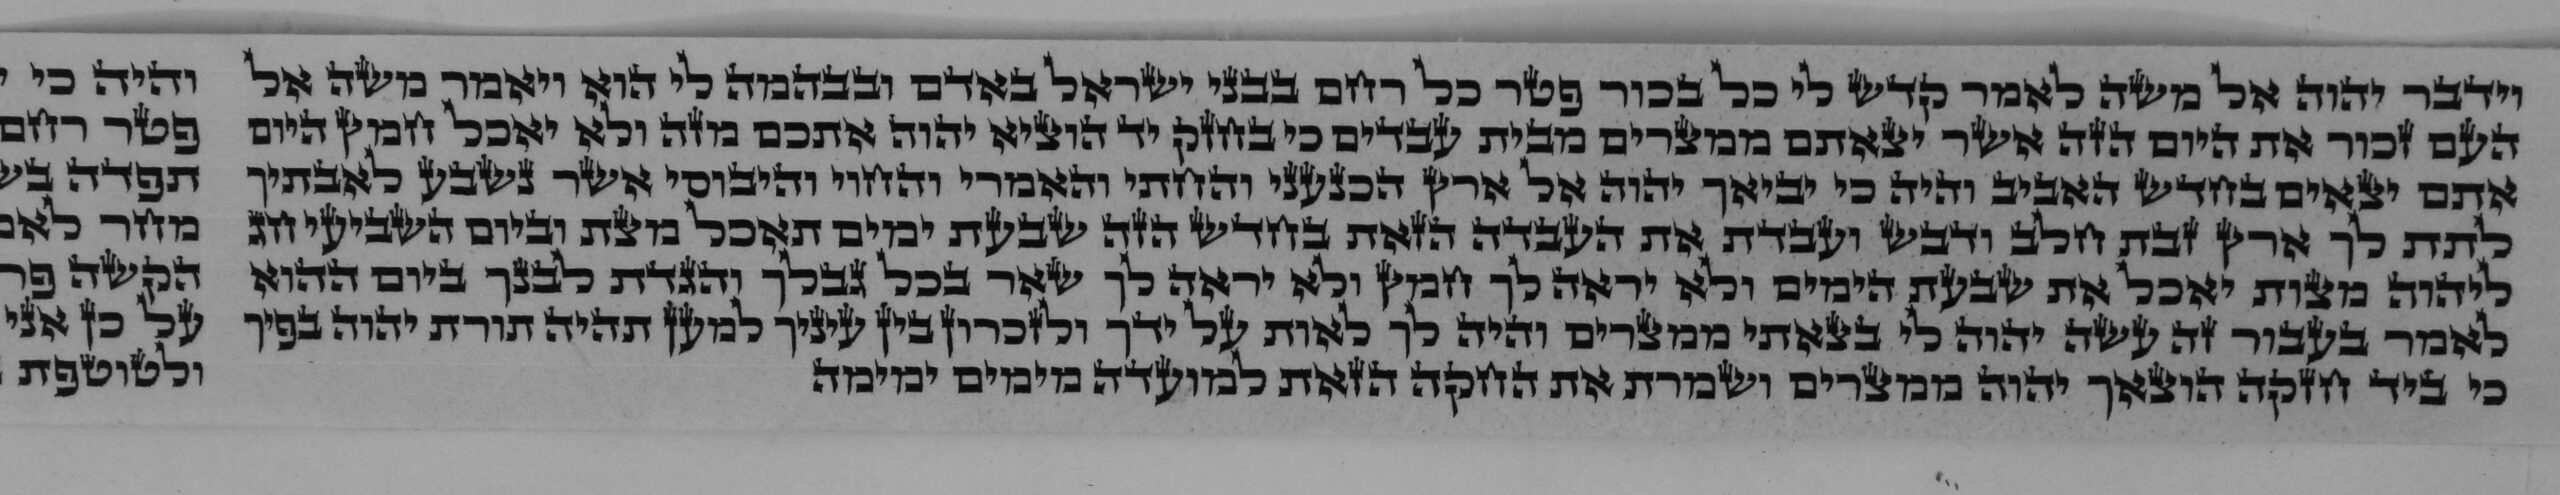 וידבר יהוה אל משה לאמר קדש לי כל בכור פטר כל רחם בבני ישראל באדם ובבהמה לי הוא ויאמר משה אל
העם זכור את היום הזה אשר יצאתם ממצרים מבית עבדים כי בחזק יד הוציא יהוה אתכם מזה ולא יאכל חמץ היום
אתם יצאים בחדש האביב והיה כי יביאך יהוה אל ארץ הכנעני והחתי והאמרי והחוי והיבוסי אשר נשבע לאבתיך
לתת לך ארץ זבת חלב ודבש ועבדת את העבדה הזאת בחדש הזה שבעת ימים תאכל מצת וביום השביעי חג
ליהוה מצות יאכל את שבעת הימים ולא יראה לך חמץ ולא יראה לך שאר בכל גבלך והגדת לבנך ביום ההוא
לאמר בעבור זה עשה יהוה לי בצאתי ממצרים והיה לך לאות על ידך ולזכרון בין עיניך למען תהיה תורת יהוה בפיך
כי ביד חזקה הוצאך יהוה ממצרים ושמרת את החקה הזאת למועדה מימים ימימה
והיה כי
פטר רחם
תפדה
מחר
הקשה
על כן אני
ולטוטפת